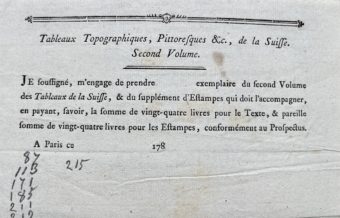 Tableaux Topographiques, Pittoresques &c., de la Suisse.
Second Volume.
JE soussigné, m'engage de prendre exemplaire du second Volume
des Tableaux de la Suisse, & du supplément d'Estampes qui doit l'accompagner,
en payant, savoir, la somme de vingt-quatre livres pour le Texte, & pareille
somme de vingt-quatre livres pour les Estampes, conformément au Prospectus.
A Paris ce 178
87
113 215
171
185
211